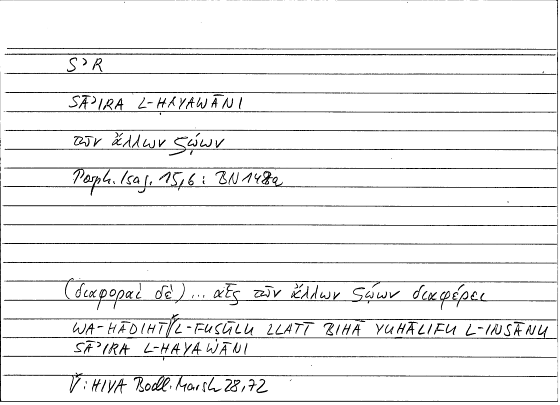 SʾR
SĀʾIRA L-ḤAYAWĀNI
τῶν ἄλλων ζῴων
Porph. Isag. 15,6 : BN 148a
(διαφοραὶ δέ) ... αἷς τῶν ἄλλων ζῴων διαφέρει
WA-HĀḎIHĪ L-FUṢŪLU LLATĪ BIHĀ YUḪĀLIFU L-INSĀNU
SĀʾIRA L-ḤAYAWĀNI
V : HIYA Bodl. Marsh 28,72